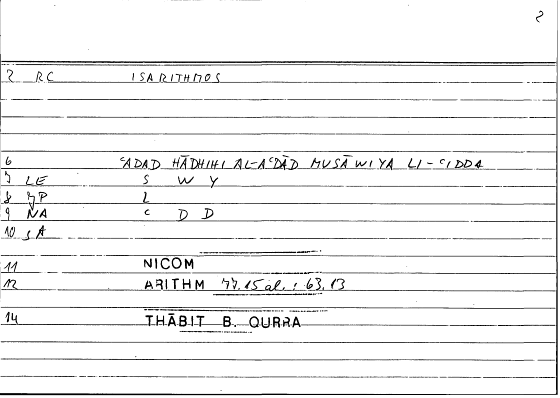 2
2 RC ISARITHMOS
6 ʿADAD HĀDHIHI AL-AʿDĀD MUSĀWIYA LI-ʿIDDA
7 LE S W Y
8 JP L
9 NA ʿ D D
10 SA
11 NICOM
12 ARITHM 77.15 al. : 63.13
14 THĀBIT B. QURRA